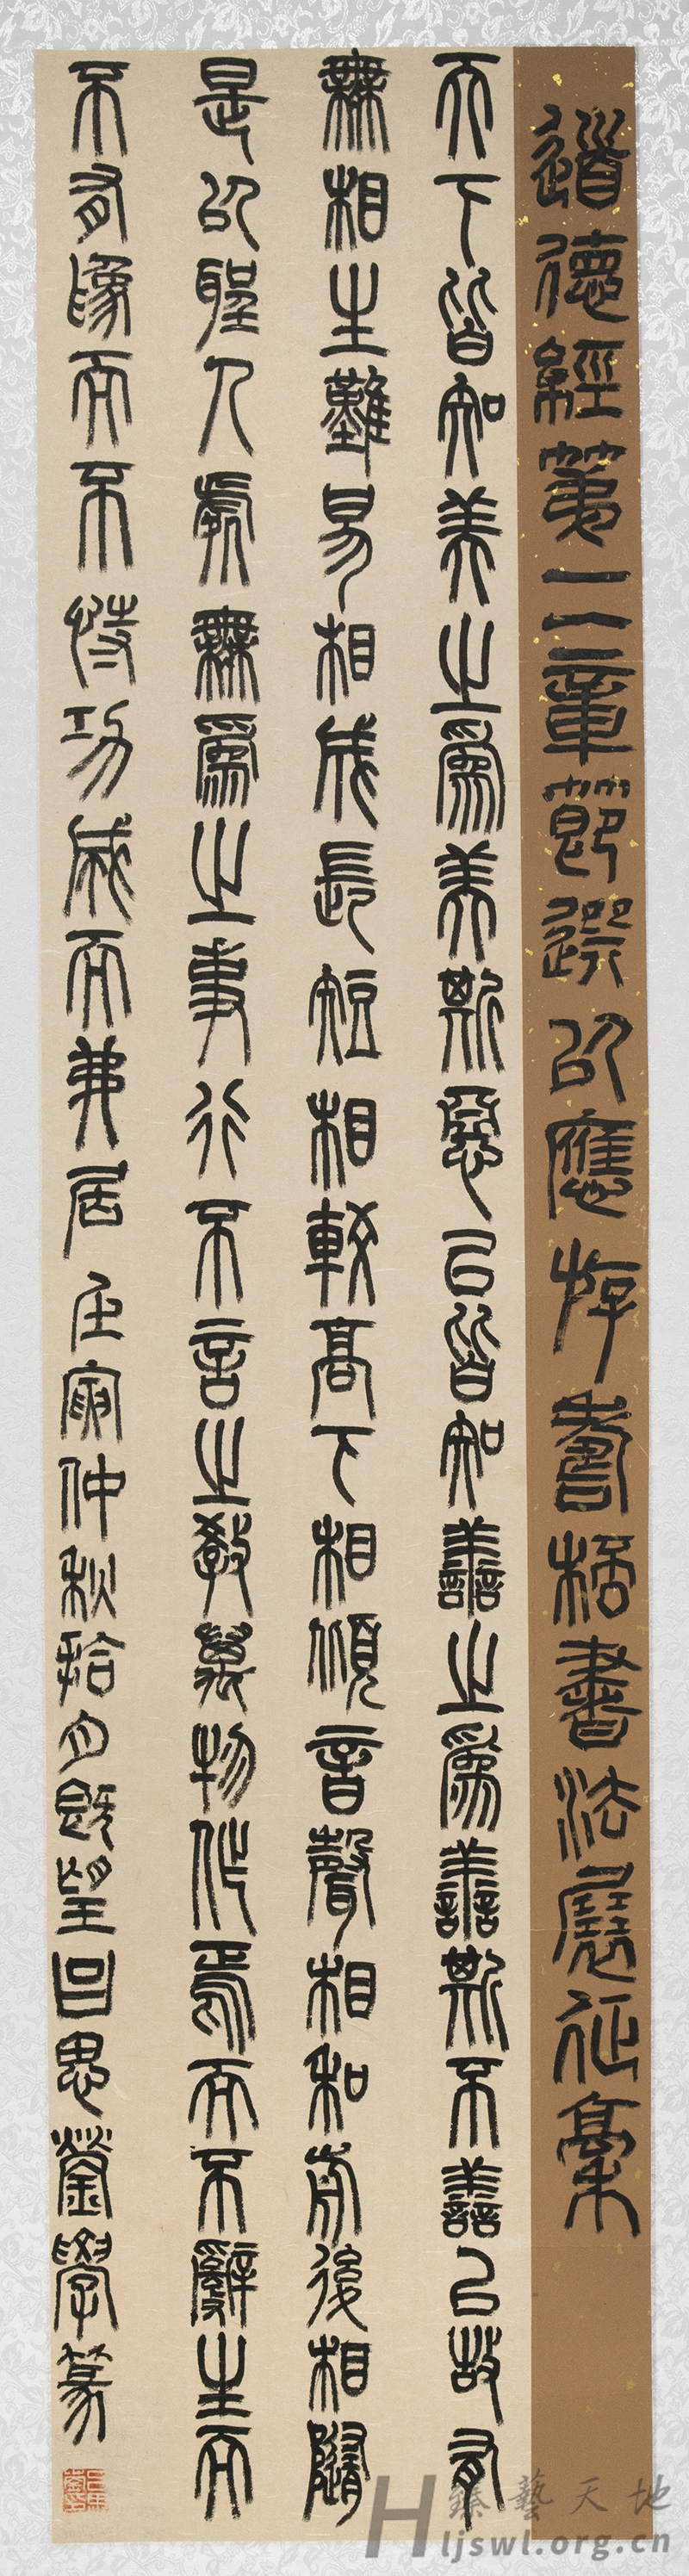 道德經第二章節選以應壽杯書法展征稿
天下皆知美之爲美斯惡已皆知善之爲善斯不善已故有
無相生難易相成長短相較高下相傾音聲相和前後相隨
是以聖人處無爲之事行不言之教萬物作焉而不辭生而
不有爲而不恃功成而弗居 壬寅仲秋拾月既望思學篆
臻藝天地
Hljswl.org.cn